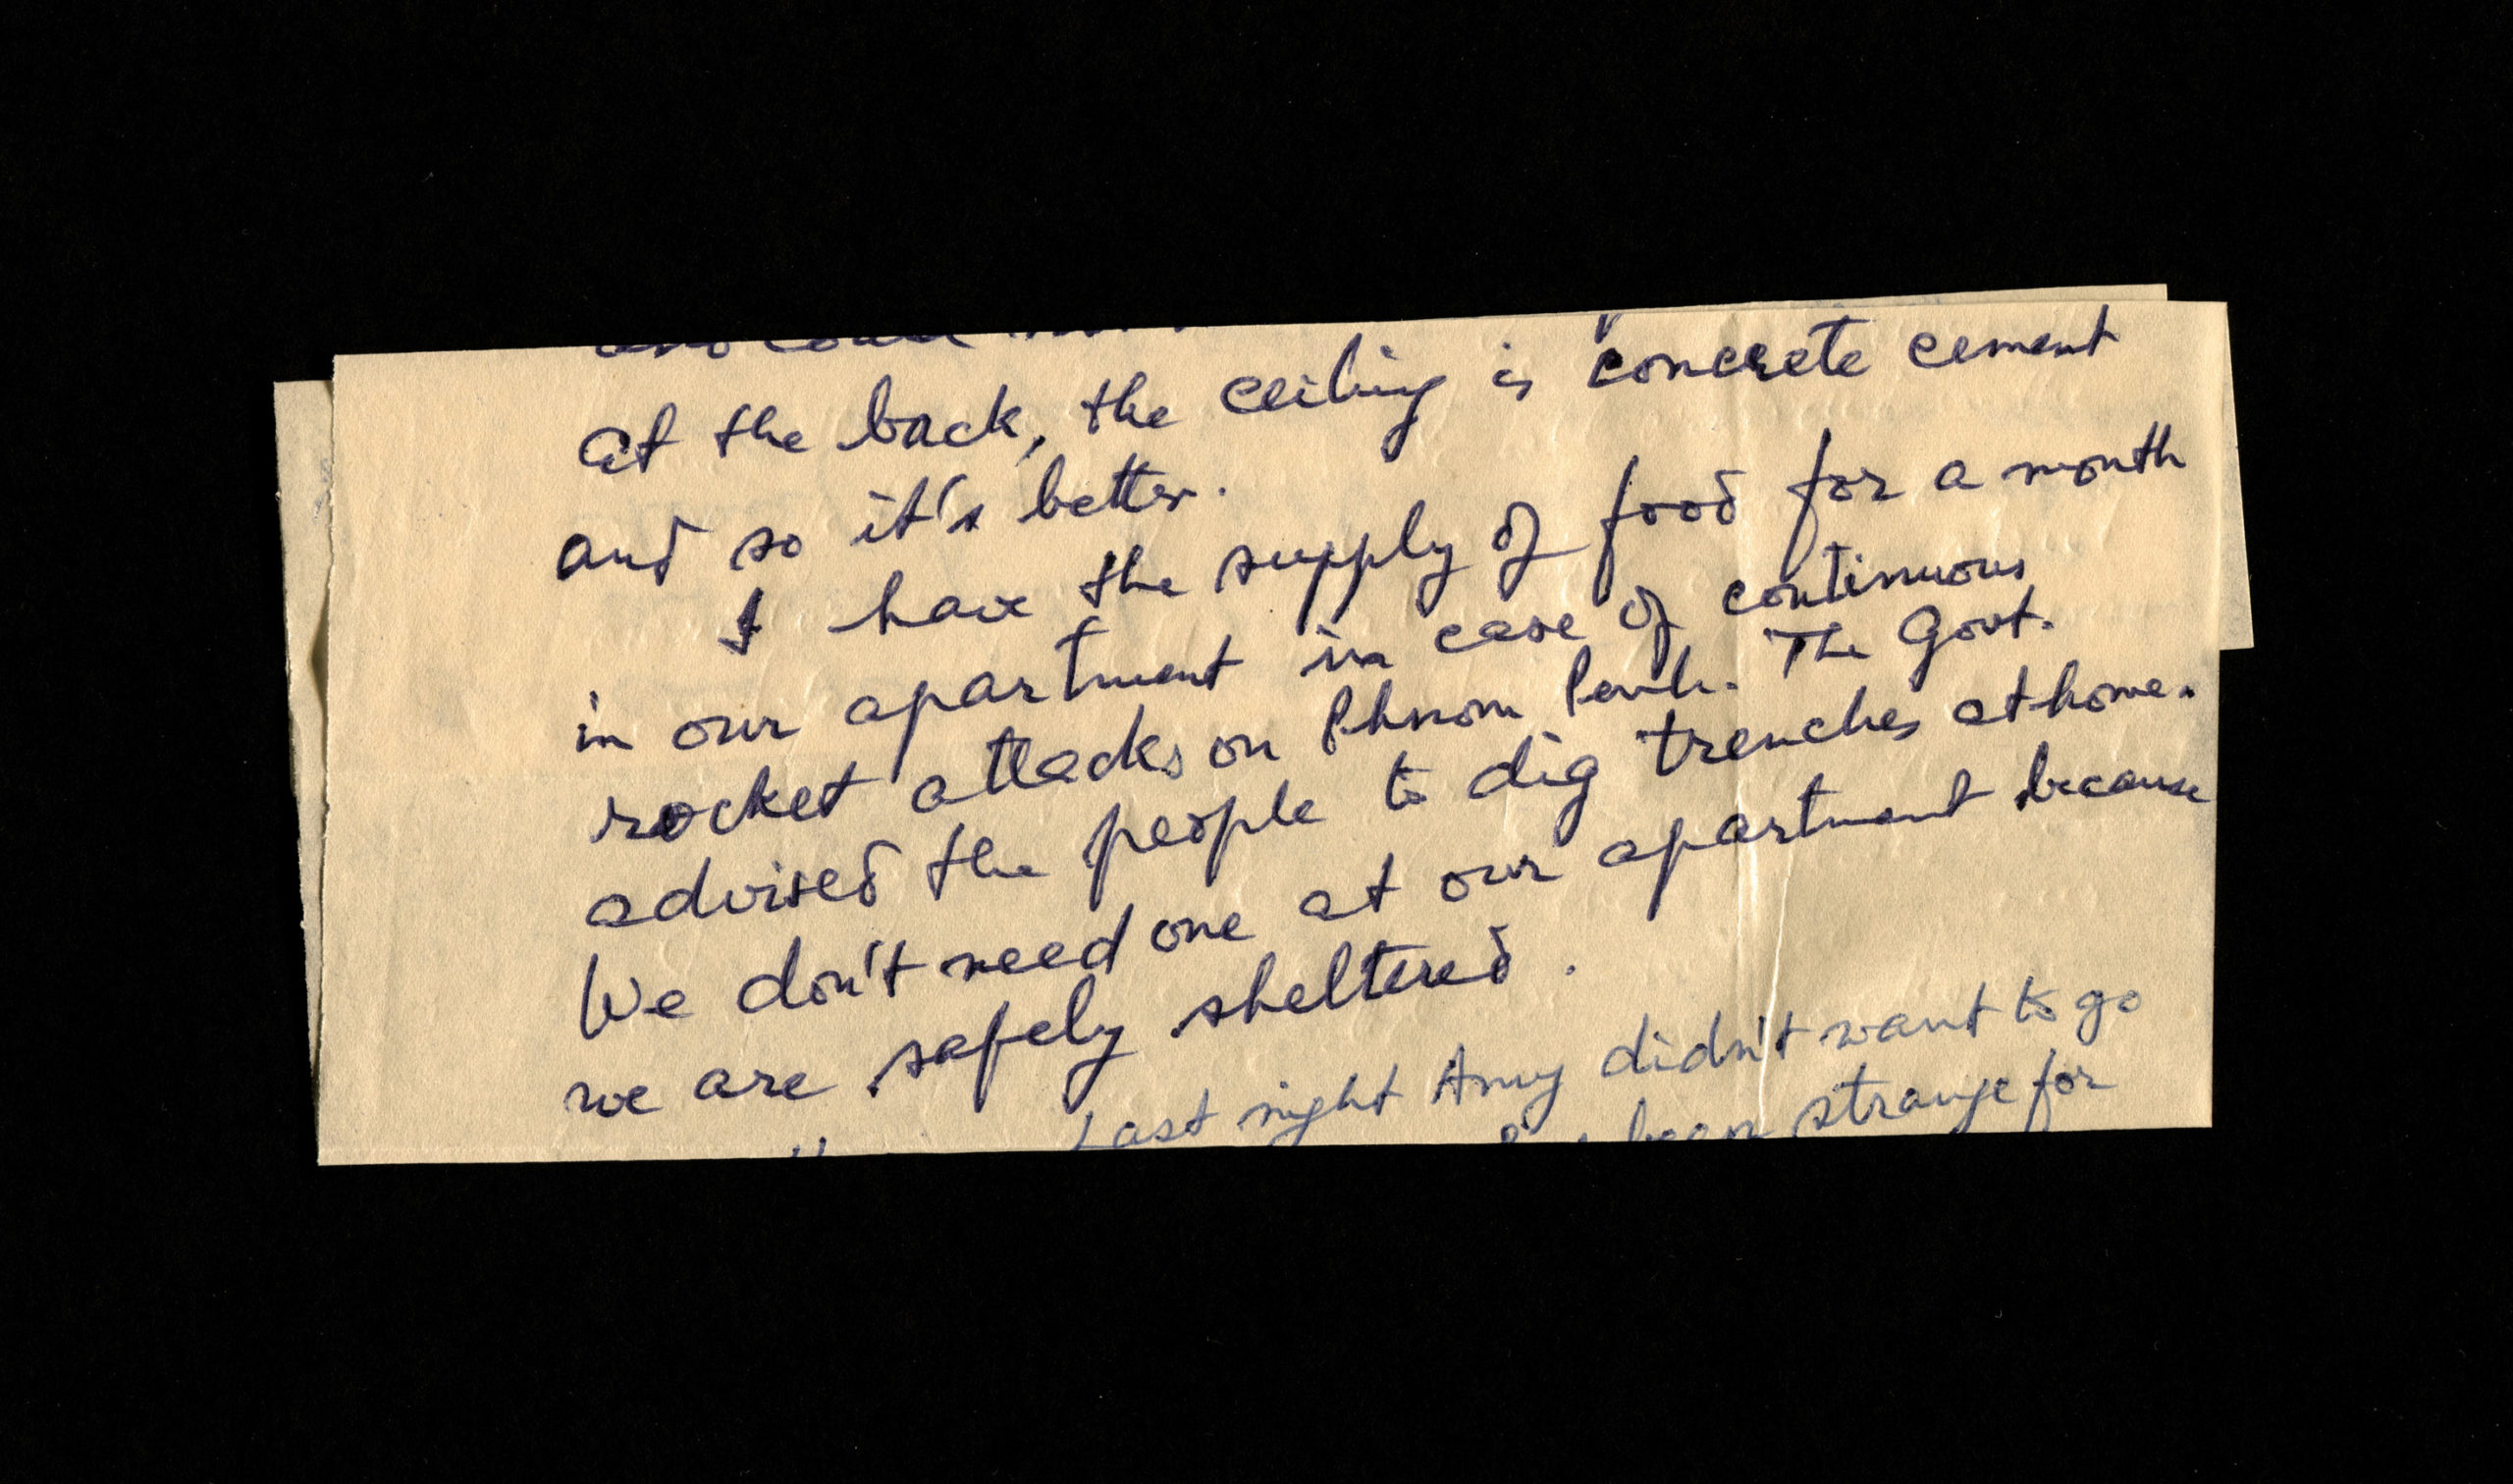 At the back, the ceiling is concrete cement
and so it's better.
I have the supply of food for a month
in our apartment in case of continuous
rocket attacks on Phnom Penh. The Govt.
advised the people to dig trenches at home.
We don't need one at our apartment because
we are safely sheltered.
Last night Amy didn't want to go
been strange for